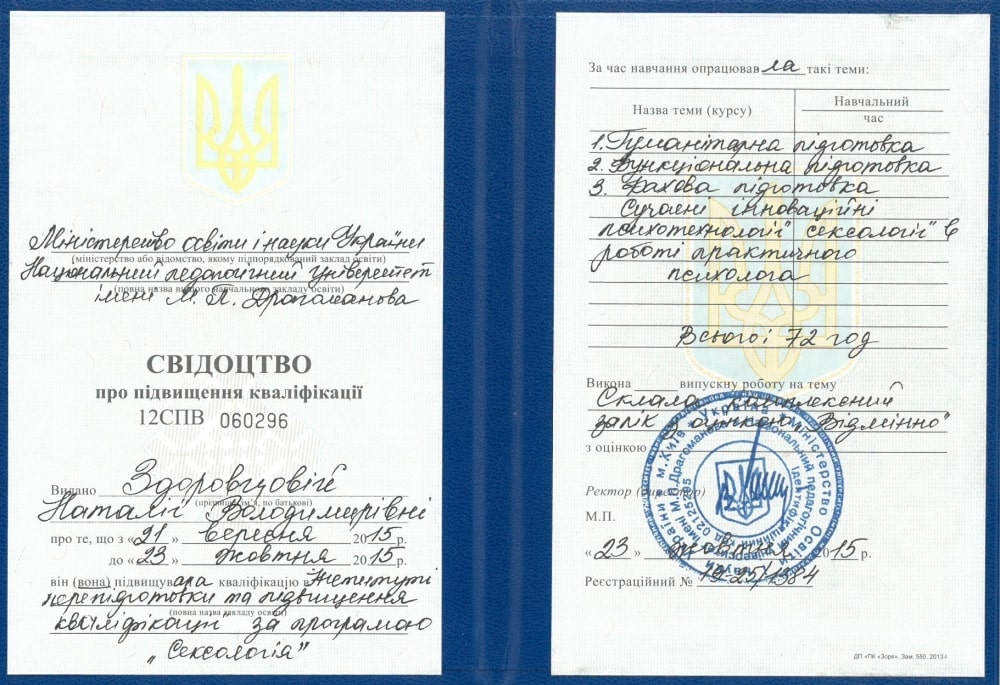 Міністерство освіти і науки України
(міністерство або відомство, якому підпорядкований заклад освіти)
Національний педагогічний університет
(повна назва вищого навчального закладу освіти)
імені М. П. Драгоманова
СВІДОЦТВО
про підвищення кваліфікації
12СПВ 060296
Видано Здоровцовій
(прізвище, ім'я, по батькові)
Наталії Володимирівні
про те, що з «21» вересня 2015 р.
до «23» жовтня 2015 р.
він (вона) підвищувала кваліфікацію в Інституті
перепідготовки та підвищення
(повна назва закладу освіти)
кваліфікації за програмою
„Сексологія"
За час навчання опрацювала такі теми:
Назва теми (курсу)
Навчальний
час
1. Гуманітарна підготовка
2. Функціональна підготовка
3. Фахова підготовка
Сучасні інноваційні
психотехнології" сексології" в
роботі практичного
психолога
Всього: 72 год
Викона випускну роботу на тему
Склала комплексний
залік з оцінкою „Відмінно"
з оцінкою
Ректор (директор)
М.П.
«23» жовтня 2015 р.
Реєстраційний № 19-25/1984
ДП «ПК «Зоря». Зам. 550. 2013-І